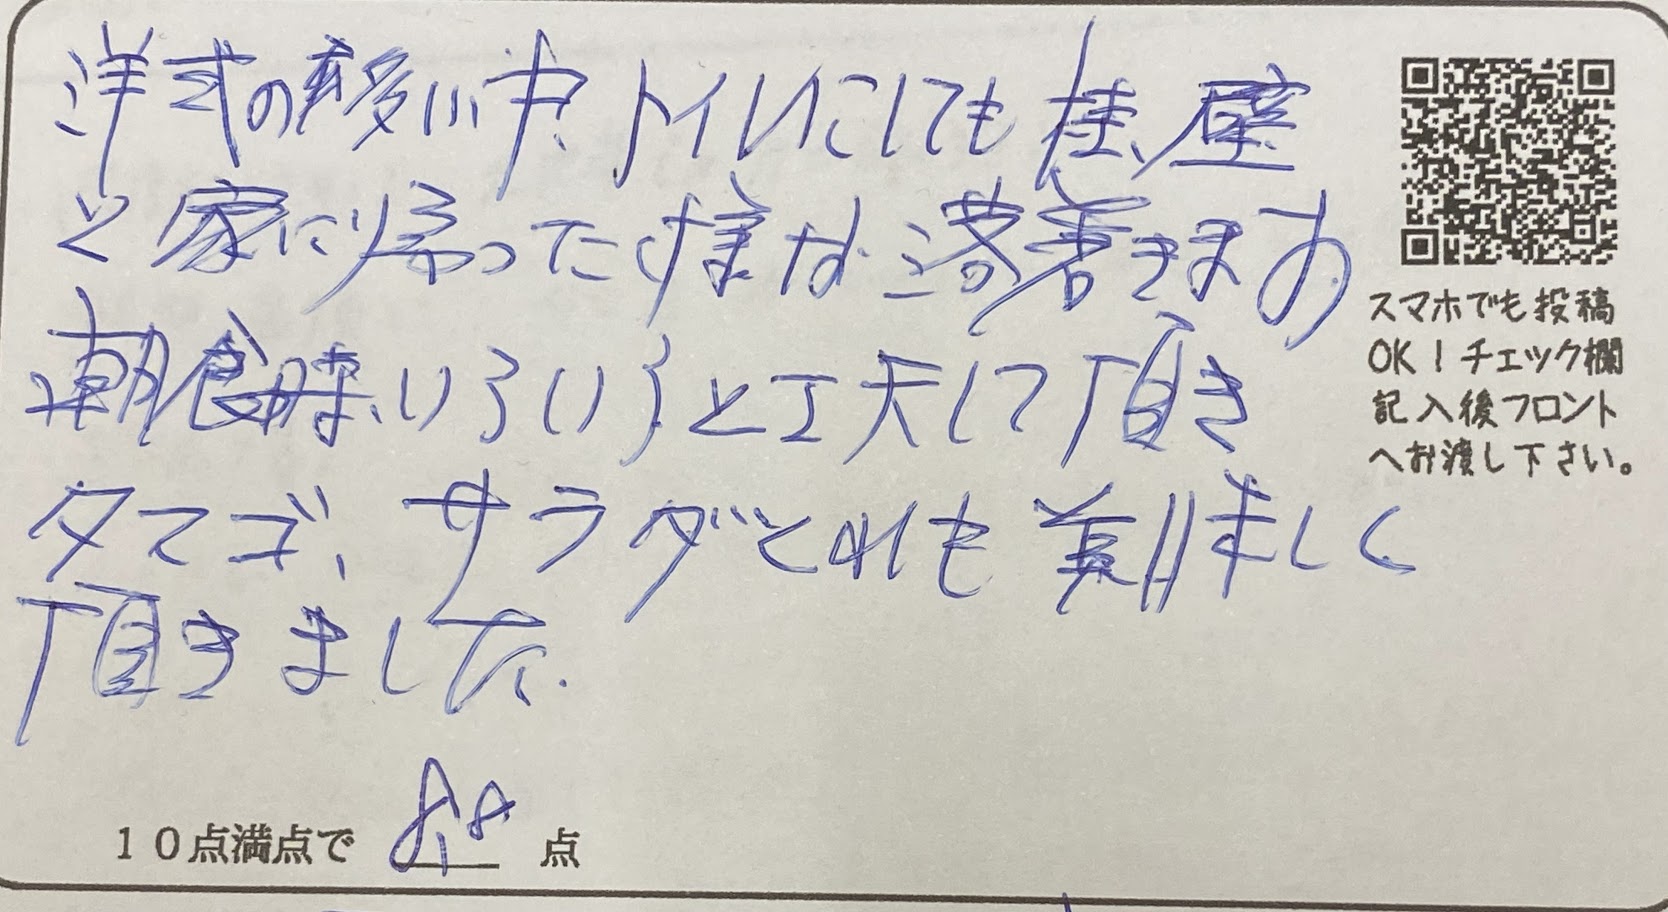 洋式の多い中、トイレにしても、柱、壁
と家に帰った様な落着きます
朝食時、いろいろと工夫して頂き
タマゴ、サラダとれも美味しく
頂きました.
10点満点で 8.8 点
スマホでも投稿
OK！チェック欄
記入後フロント
へお渡し下さい。